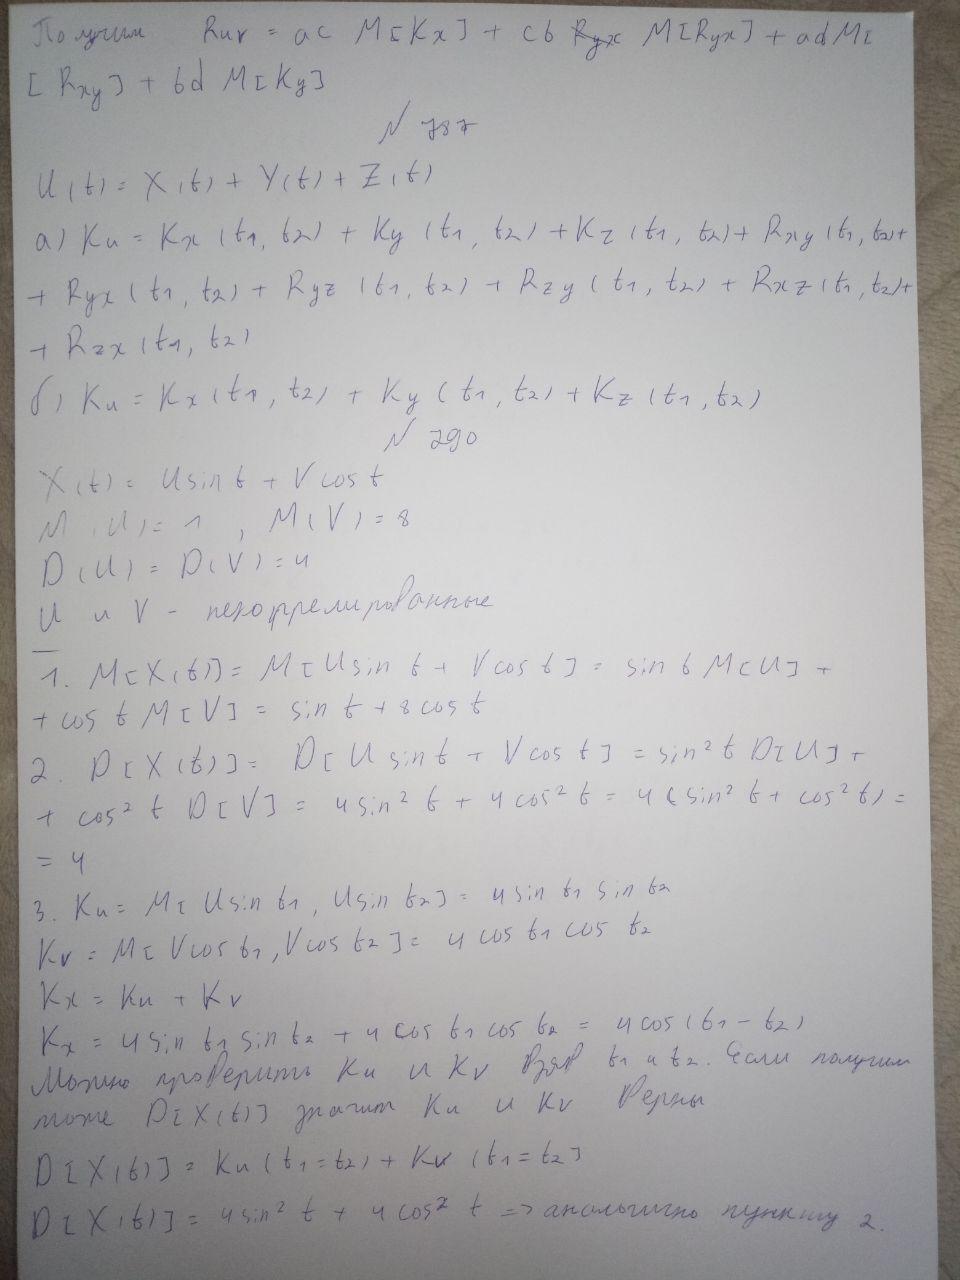 Получим Ruv = ac M[Kx] + cb M[Ryx] + ad M[
[Rxy] + bd M[Ky]
N 787
U(t) = X(t) + Y(t) + Z(t)
а) Ku = Kx (t1, t2) + Ky (t1, t2) + Kz (t1, t2) + Rxy (t1, t2) +
+ Ryx (t1, t2) + Ryz (t1, t2) + Rzy (t1, t2) + Rxz (t1, t2) +
+ Rzx (t1, t2)
б) Ku = Kx (t1, t2) + Ky (t1, t2) + Kz (t1, t2)
N 790
X(t) = U sin t + V cos t
M(U) = 1, M(V) = 8
D(U) = D(V) = 4
U и V - некоррелированные
1. M[X(t)] = M[U sin t + V cos t] = sin t M[U] +
+ cos t M[V] = sin t + 8 cos t
2. D[X(t)] = D[U sin t + V cos t] = sin² t D[U] +
+ cos² t D[V] = 4 sin² t + 4 cos² t = 4 (sin² t + cos² t) =
= 4
3. Ku = M[U sin t1, U sin t2] = 4 sin t1 sin t2
Kv = M[V cos t1, V cos t2] = 4 cos t1 cos t2
Kx = Ku + Kv
Kx = 4 sin t1 sin t2 + 4 cos t1 cos t2 = 4 cos (t1 - t2)
Можно проверить Ku и Kv взяв t1 и t2. Если получим
тоже D[X(t)] значит Ku и Kv верны
D[X(t)] = Ku (t1 = t2) + Kv (t1 = t2]
D[X(t)] = 4 sin² t + 4 cos² t => аналогично пункту 2.